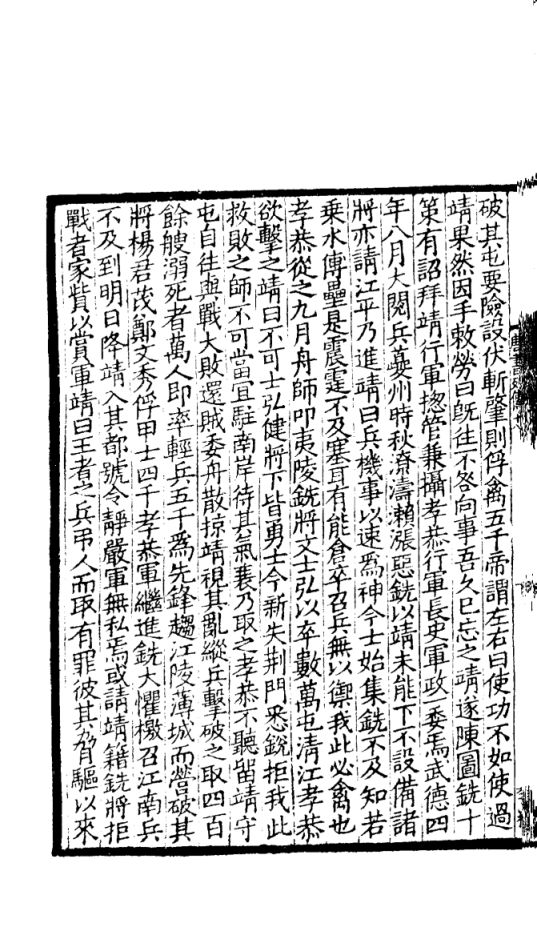 破其屯要險設伏斬肇則俘禽五千帝謂左右曰使功不如使過
靖果然因手敕勞曰旣往不咎向事吾久已忘之靖遂陳圖銑十
策有詔拜靖行軍揔管兼攝孝恭行軍長史軍政一委焉武德四
年八月大閱兵夔州時秋潦濤瀨漲惡銑以靖未能下不設備諸
將亦請江平乃進靖曰兵機事以速爲神今士始集銑不及知若
乗水傅壘是震霆不及塞耳有能倉卒召兵無以禦我此必禽也
孝恭從之九月舟師叩夷陵銑將文士弘以卒數萬屯清江孝恭
欲擊之靖曰不可士弘健將下皆勇士今新失荆門悉銳拒我此
救敗之師不可當宜駐南岸待其氣衰乃取之孝恭不聽留靖守
屯自往與戰大敗還賊委舟散掠靖視其亂縱兵擊破之取四百
餘艘溺死者萬人即率輕兵五千爲先鋒趨江陵薄城而營破其
將楊君茂鄭文秀俘甲士四千孝恭軍繼進銑大懼檄召江南兵
不及到明日降靖入其都號令靜嚴軍無私焉或請靖籍銑將拒
戰者家貲以賞軍靖曰王者之兵弔人而取有罪彼其脅驅以來